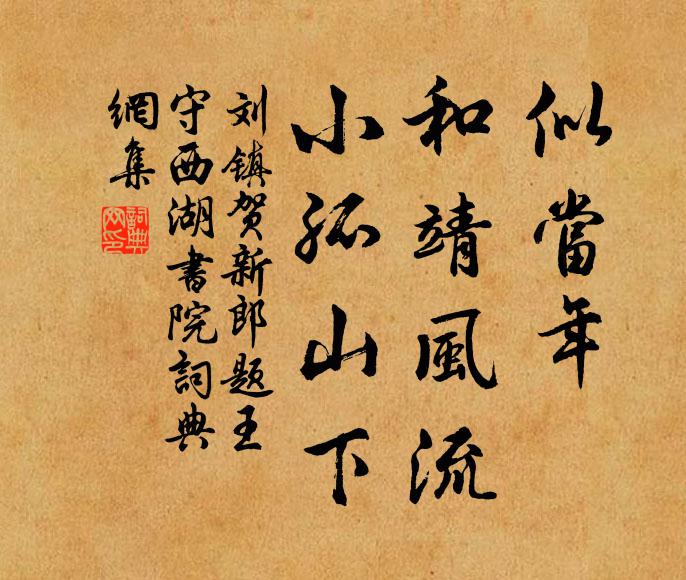 似當年
和靖風流
小孤山下
刘镇贺新郎题王
守西湖書院詞典
網集
詞典網印